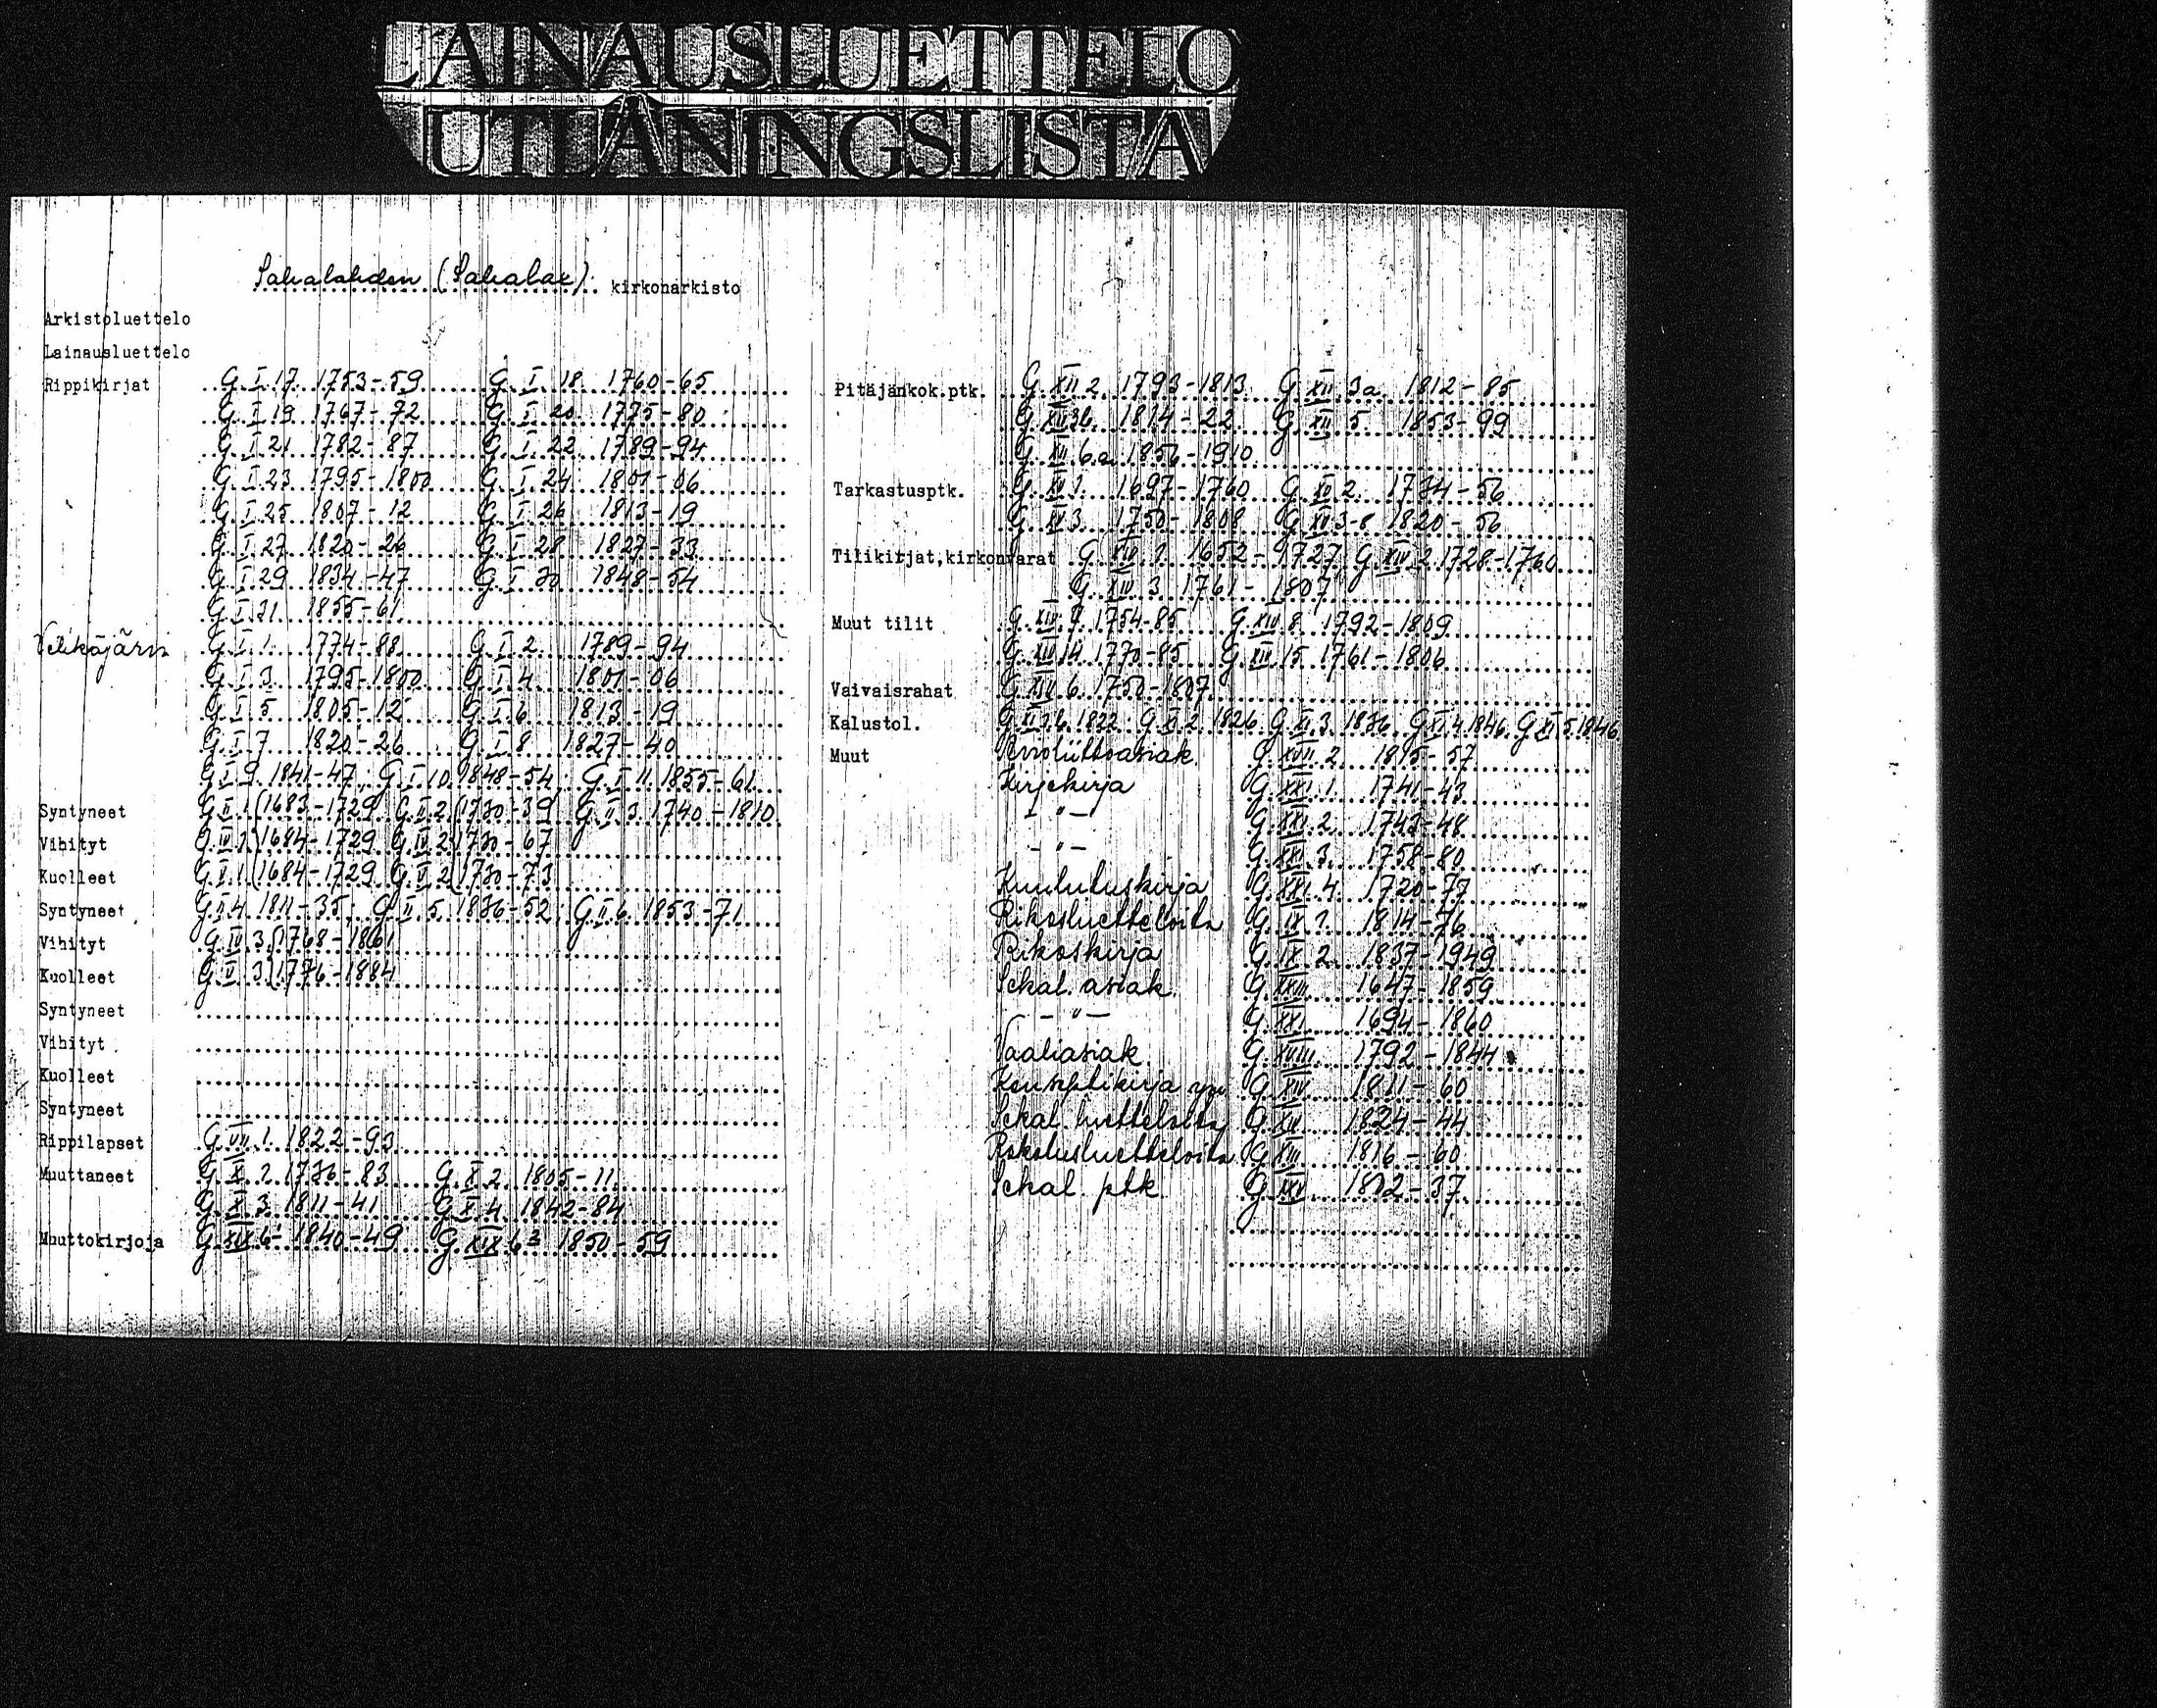 LAINAUSLUETTELO
UTLÅNINGSLISTA
Sahalahden (Sahalax) kirkonarkisto
Arkistoluettelo
Lainausluettelo
Rippikirjat G I 17 1753-59 G I 18 1760-65
G I 19 1767-72 G I 20 1775-80
G I 21 1782-87 G I 22 1789-94
G I 23 1795-1800 G I 24 1801-06
G I 25 1807-12 G I 26 1813-19
G I 27 1820-26 G I 28 1827-33
G I 29 1834-47 G I 30 1848-54
G I 31 1855-61
G I 1 1774-88 G I 2 1789-94
G I 3 1795-1800 G I 4 1801-06
G I 5 1805-12 G I 6 1813-19
G I 7 1820-26 G I 8 1827-40
G I 9 1841-47; G I 10 1848-54; G I 11 1855-61
Syntyneet G II 1 (1683-1729 G II 2 (1730-39 G II 3 1740-1810
Vihityt 1684-1729 G IV 2 1730-67
Kuolleet G V 1 (1684-1729 G V 2 (1730-73
Syntyneet G II 4 1811-35; G II 5 1836-52; G II 6 1853-71
Vihityt G IV 3 1768-1861
Kuolleet G V 3 1776-1884
Syntyneet
Vihityt
Kuolleet
Syntyneet
Rippilapset G VII 1 1822-93
Muuttaneet G X 1 1736-83 G X 2 1805-11
G X 3 1811-41 G X 4 1842-84
Muuttokirjoja G XIX 6 1840-49 G XIX 63 1850-59
Pitäjänkok.ptk. G XII 2 1793-1813 G XII 3a 1812-85
G XII 3b 1814-22 G XII 5 1853-99
G XII 6a 1856-1910
Tarkastusptk. 1697-1760 1734-56
1750-1808 1820-56
Tilikirjat,kirkonvarat G XIV 1 1652-1727; G XIV 2 1728-1760
G XIV 3 1761-1807
Muut tilit G XIV 7 1754-85 G XIV 8 1792-1809
G XIV 14 1770-85 G XIV 15 1761-1806
Vaivaisrahat G XIV 6 1750-1807
Kalustol. 1822 1826 1836 1846 1846
Muut Avioliittoasiak. G XVII 2 1815-57
Kirjekirja G XXI 1 1741-43
- " - G XXI 2 1743-48
- " - G XXI 3 1758-80
Kuulutuskirja G XXI 4 1720-77
Rikosluetteloita G IX 1 1814-76
Rikoskirja G IX 2 1837-1949
Sekal. asiak. G XXIII 1647-1859
- " - G XXI 1694-1860
Vaaliasiak. G XVIII 1792-1844
Konseptikirja G XIV 1811-60
Sekal. luetteloita 1824-44
Rokotusluetteloita G XIII 1816-60
Sekal. ptk. 1802-37